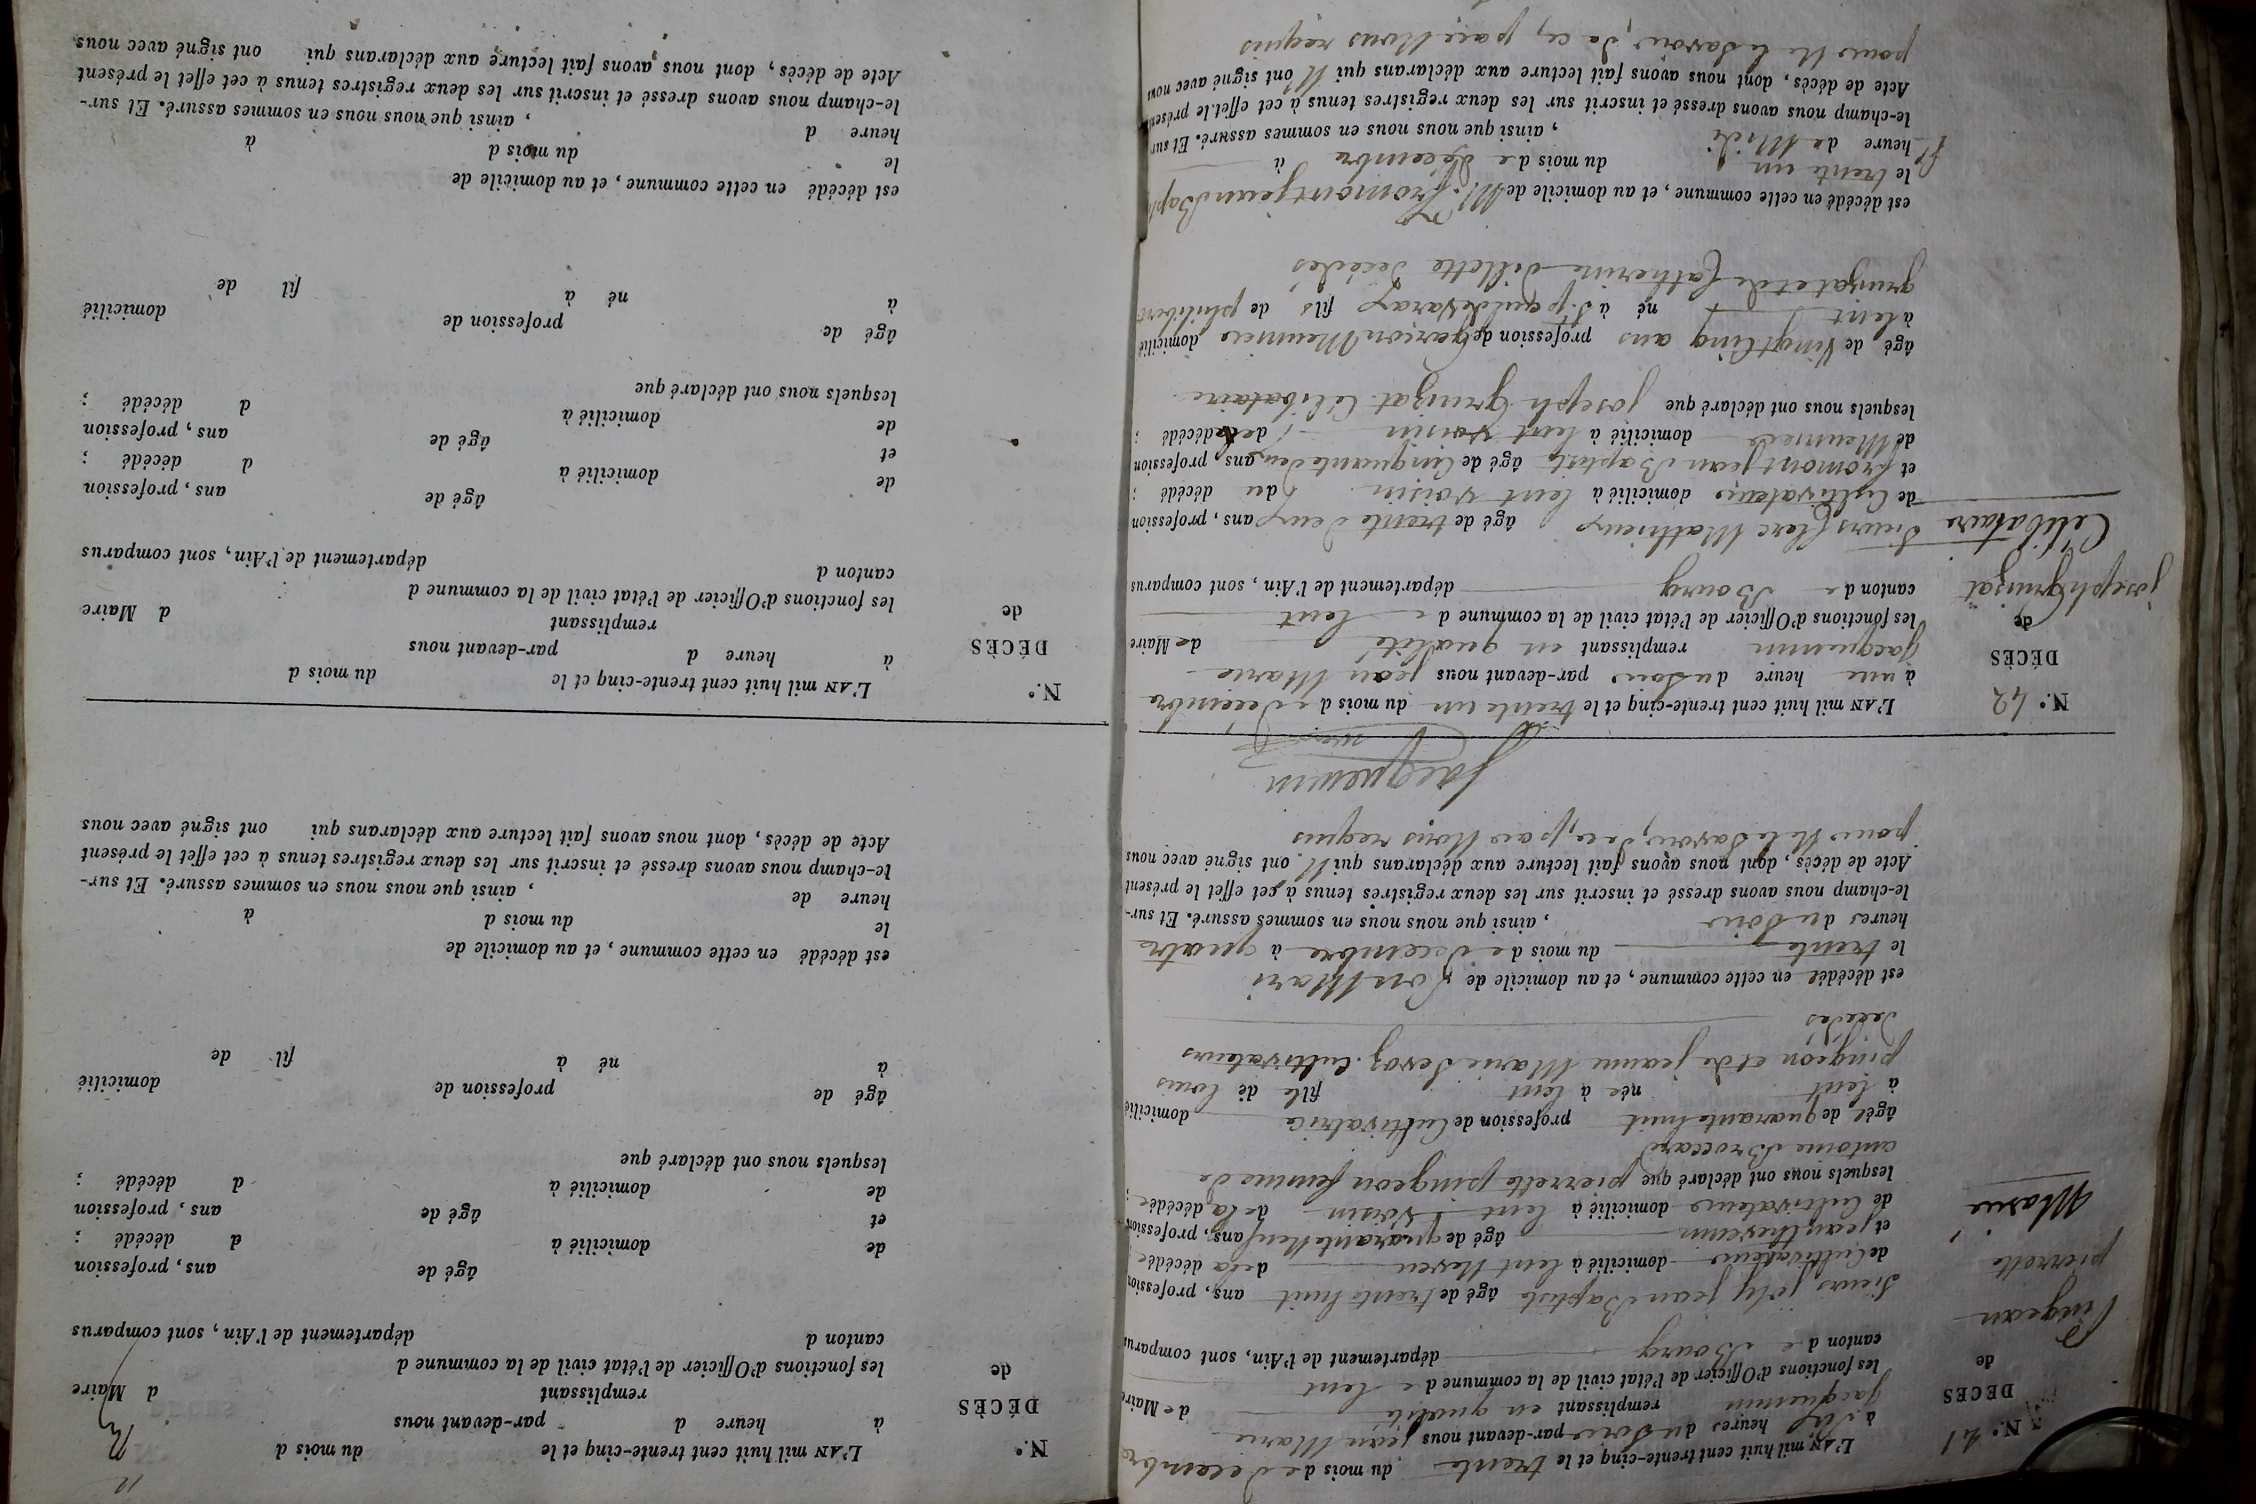 N.° 41
DÉCÈS
de
Pingeon
pierrette
Marie
L'AN mil huit cent trente-cinq et le trente du mois de decembre
à six heures du soir par-devant nous jean Marie
jacquemin remplissant en qualité de Maire
les fonctions d'Officier de l'état civil de la commune de lent
canton de Bourg département de l'Ain, sont comparus
Sieurs joly jean Baptiste âgé de trente huit ans, profession
de Cultivateur domicilié à lent Neveu de la décédée ;
et jean thevenin âgé de quarante Neuf ans, profession
de Cultivateur domicilié à lent Voisin de la décédée ;
lesquels nous ont déclaré que pierrette pingeon femme de
antoine Broccard
âgée de quarante huit profession de Cultivatrice domicilié
à lent née à lent fille de louis
pingeon et de jeanne Marie Cultivateurs
decédés
est décédée en cette commune, et au domicile de son Mari
le trente du mois de decembre à quatre
heures du soir , ainsi que nous nous en sommes assuré. Et sur-
le-champ nous avons dressé et inscrit sur les deux registres tenus à cet effet le présent
Acte de décès, dont nous avons fait lecture aux déclarans qui N ont signé avec nous
pour Ne le savoir, de ce, par Nous requis
Jacquemin
N.° 42
DÉCÈS
de
joseph Gruizat
Célibataire
L'AN mil huit cent trente-cinq et le trente un du mois de Decembre
à une heure du soir par-devant nous jean Marie
jacquemin remplissant en qualité de Maire
les fonctions d'Officier de l'état civil de la commune de lent
canton de Bourg département de l'Ain, sont comparus
Sieurs Clerc Matthieu âgé de trente Deux ans, profession
de Cultivateur domicilié à lent voisin du décédé ;
et fromont jean Baptiste âgé de Cinquante deux ans, profession
de Meunier domicilié à lent voisin de décédé ;
lesquels nous ont déclaré que joseph Gruizat Célibataire
âgé de Vingt Cinq ans profession de Garçon Meunier domicilié
à lent né à fils de philibert
gruizat et de Catherine Sillette decédés
est décédé en cette commune, et au domicile de M. fromont jean Bap
le trente un du mois de décembre à
heure de Midi , ainsi que nous nous en sommes assuré. Et sur
le-champ nous avons dressé et inscrit sur les deux registres tenus à cet effet le présent
Acte de décès, dont nous avons fait lecture aux déclarans qui N ont signé avec nous
pour Ne le savoir, de ce, par Nous requis
N.°
DÉCÈS
de
L'AN mil huit cent trente-cinq et le du mois d
à heure d par-devant nous
remplissant d Maire
les fonctions d'Officier de l'état civil de la commune d
canton d département de l'Ain, sont comparus
âgé de ans, profession
de domicilié à d décédé ;
et âgé de ans, profession
de domicilié à d décédé ;
lesquels nous ont déclaré que
âgé de profession de domicilié
à né à fil de
est décédé en cette commune, et au domicile de
le du mois d à
heure de , ainsi que nous nous en sommes assuré. Et sur-
le-champ nous avons dressé et inscrit sur les deux registres tenus à cet effet le présent
Acte de décès, dont nous avons fait lecture aux déclarans qui ont signé avec nous
N.°
DÉCÈS
de
L'AN mil huit cent trente-cinq et le du mois d
à heure d par-devant nous
remplissant d Maire
les fonctions d'Officier de l'état civil de la commune d
canton d département de l'Ain, sont comparus
âgé de ans, profession
de domicilié à d décédé ;
et âgé de ans, profession
de domicilié à d décédé ;
lesquels nous ont déclaré que
âgé de profession de domicilié
à né à fil de
est décédé en cette commune, et au domicile de
le du mois d à
heure d , ainsi que nous nous en sommes assuré. Et sur-
le-champ nous avons dressé et inscrit sur les deux registres tenus à cet effet le présent
Acte de décès, dont nous avons fait lecture aux déclarans qui ont signé avec nous